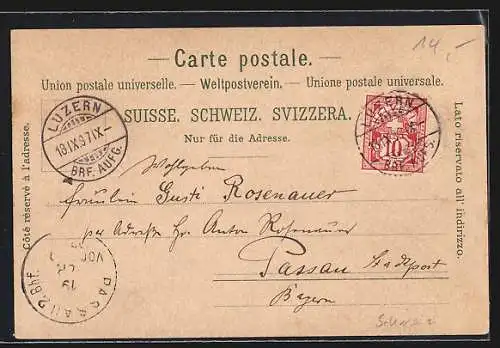 14,-
Carte postale.
Union postale universelle. — Weltpostverein. — Unione postale universale.
SUISSE. SCHWEIZ. SVIZZERA.
Nur für die Adresse.
Côté réservé à l'adresse.
Lato riservato all' indirizzo.
LUZERN
18.IX.97.IX–
BRF. AUFG.
LUZERN
10
BRF. AUFG.
Wohlgeboren
Fräulein Gusti Rosenauer
per Adresse Hr. Anton Rosenauer
Passau Stadtpost
Bayern
PASSAU 2.Bhf.
19
VOR
Schweiz